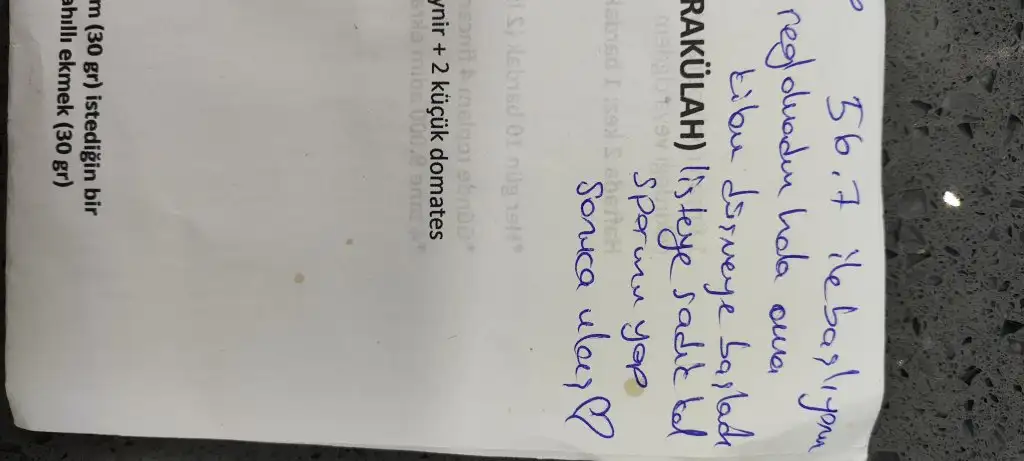 56.7 ile başlıyorum
regl olmadım hala ama
kilom düşmeye başladı
RAKÜLAH) listeye sadık kal
sporunu yap
sonuca ulaş ♡
ynir + 2 küçük domates
m (30 gr) istediğin bir
ahıllı ekmek (30 gr)